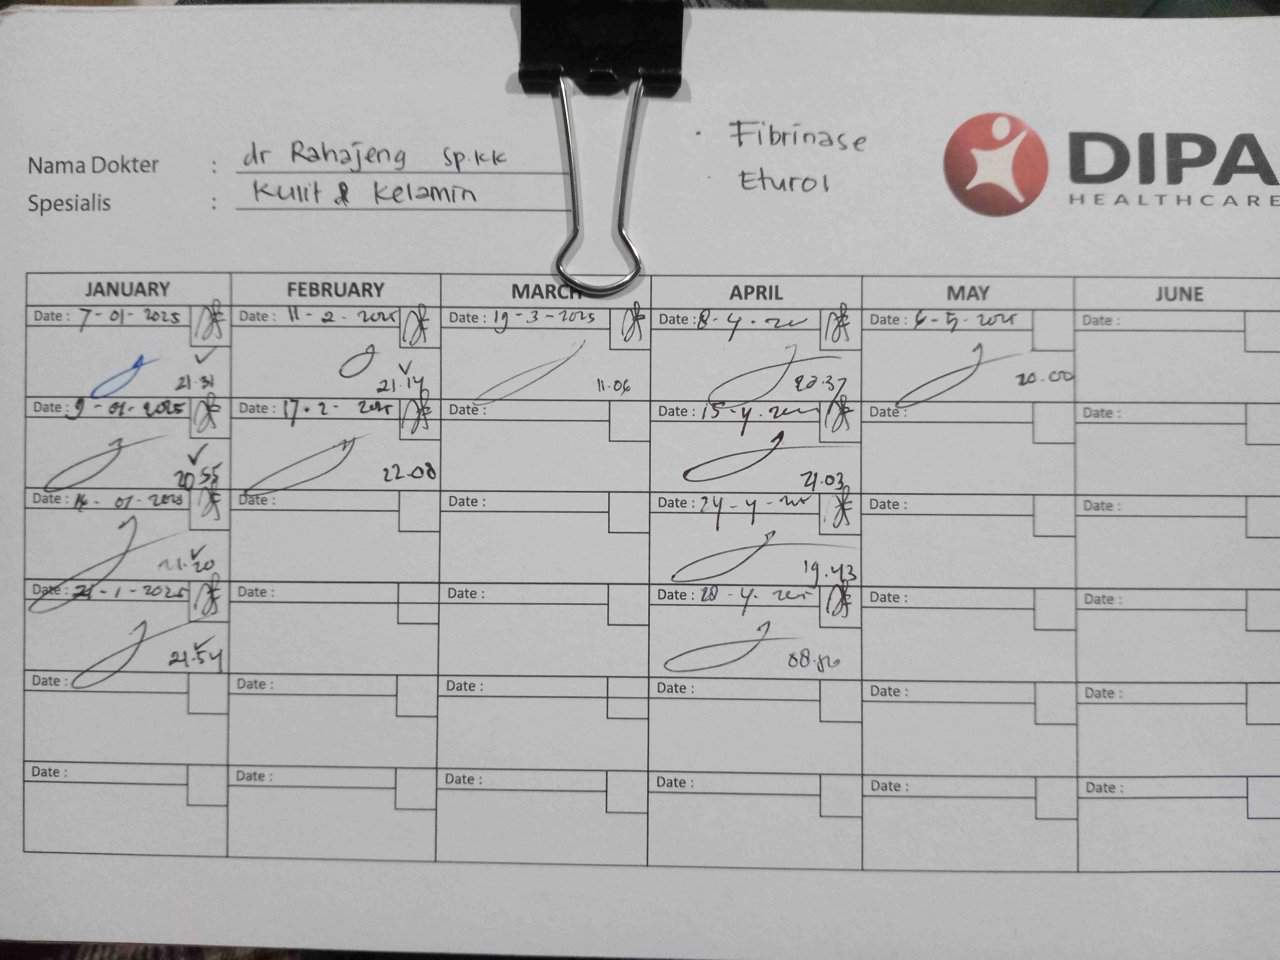 Nama Dokter : dr Rahajeng Sp.KK
Spesialis : Kulit & Kelamin
• Fibrinase
• Eturol
DIPA
HEALTHCARE
JANUARY FEBRUARY MARCH APRIL MAY JUNE
Date : 7-01-2025 Date : 11-2-2025 Date : 19-3-2025 Date : 8-4- Date : 6-5-2025 Date :
21.31 21.14 11.06 20.37 20.00
Date : 9-01-2025 Date : 17-2-2025 Date : Date : 15-4- Date : Date :
20.55 22.08 21.03
Date : 16-01-2025 Date : Date : Date : 24-4- Date : Date :
21.20 19.43
Date : 21-1-2025 Date : Date : Date : 28-4- Date : Date :
21.54
Date : Date : Date : Date : Date : Date :
Date : Date : Date : Date : Date : Date :